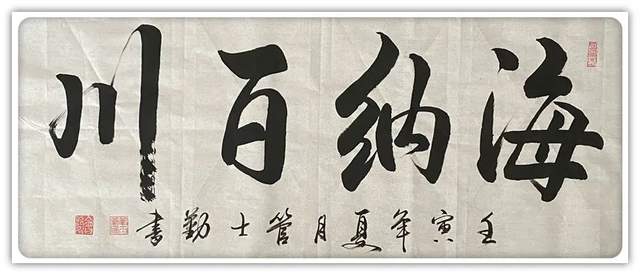 海纳百川
壬寅年夏月管士勤书